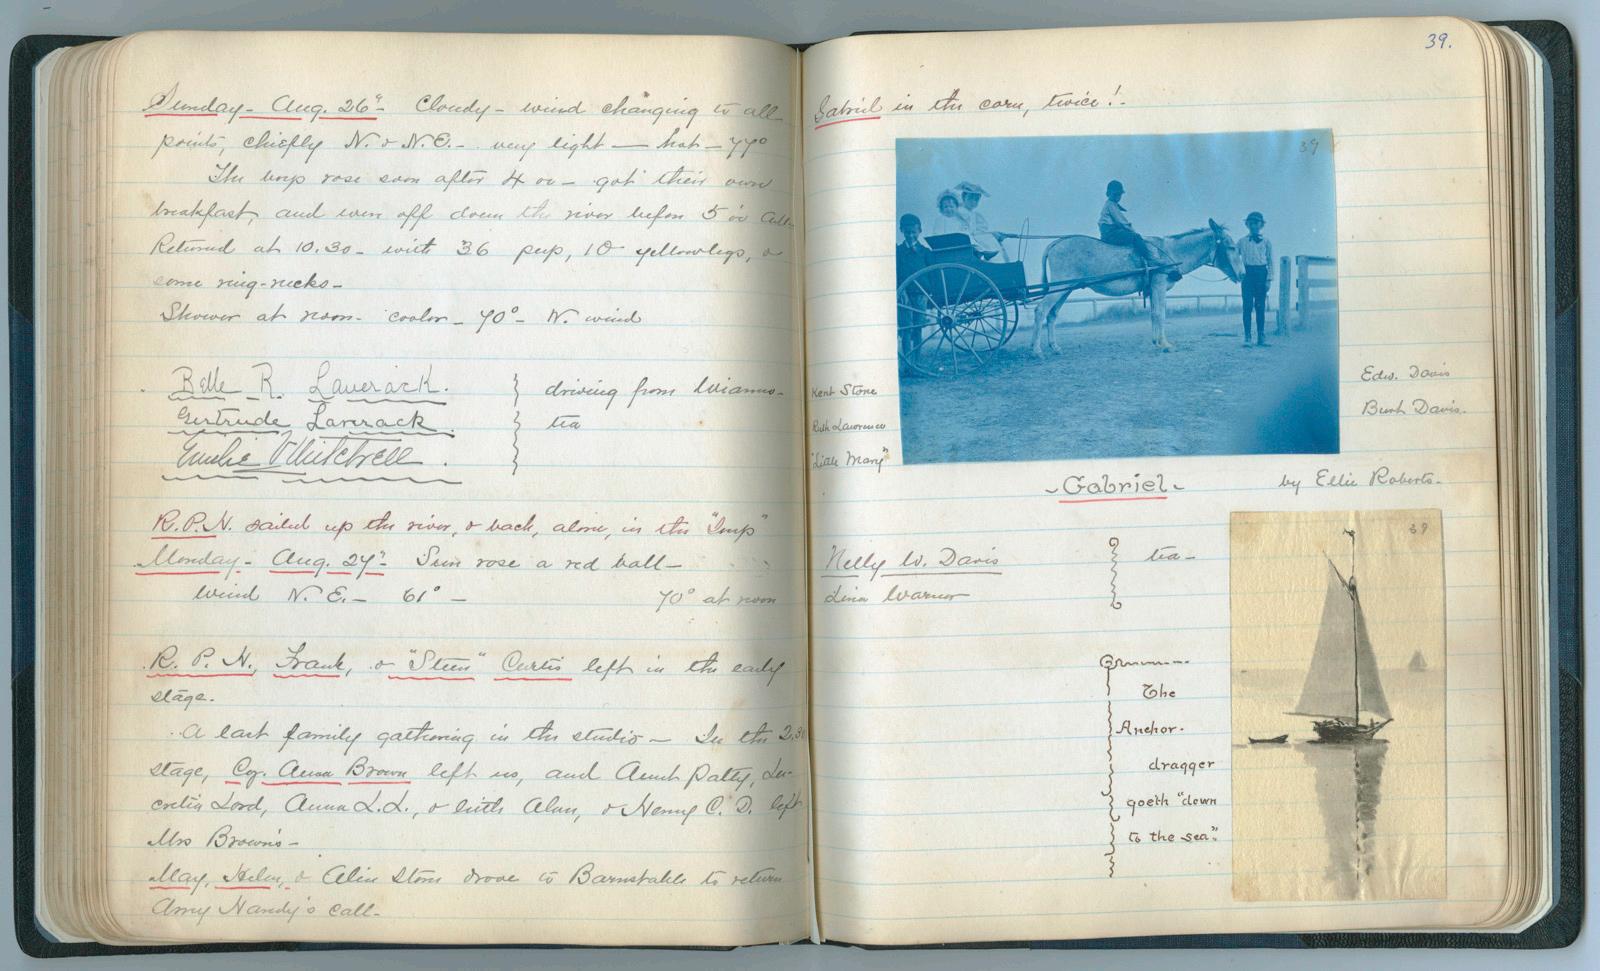 Sunday - Aug. 26" Cloudy - wind changing to all
points, chiefly N. & N.E. - very light - hot - 77°
The boys rose soon after 4 oc - got their own
breakfast, and were off down the river before 5 oc
Returned at 10.30 - with 36 peep, 10 yellowlegs, &
some ring-necks -
Shower at noon - cooler - 70° - W. wind
Belle R. Laverack.
Gertrude Laverack.
driving from Wianno -
tea
R.P.N. sailed up the river, & back, alone, in the "Imp"
Monday - Aug. 27" Sun rose a red ball -
wind N.E. - 61° - 70° at noon
R. P. N., Frank, & "Steen" Curtis left in the early
stage.
A last family gathering in the studio - In the 2.30
stage, Coz. Anna Brown left us, and Aunt Patty, Lu-
cretia Lord, Anna L.L., & little Alan, & Henry C. D. left
Mrs Brown's -
May, Helen, & Alice Stone drove to Barnstable to return
Amy Handy's call -
39.
Gabriel in the corn, twice! -
39
Kent Stone
Ruth Lawrence
"Little Mary"
Edw. Davis
Burt Davis.
- Gabriel -
by Ellie Roberts -
Nelly W. Davis
Lina Warner
tea -
39
The
Anchor -
dragger
goeth "down
to the sea."